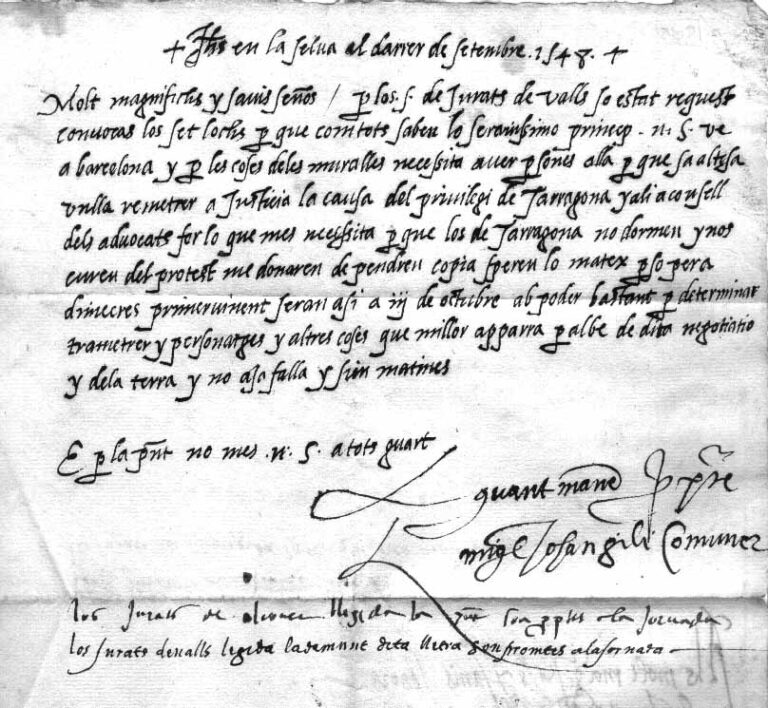 + Jhs en la selva al darrer de setembre . 1548 . +
Molt magnifichs y savis señors / p los . s . de Jurats de valls so estat request
convocas los set lochs p que com tots saben lo serenissimo princep . n . S . ve
a barcelona y p les coses deles muralles necessita aver psones alla p que sa altesa
vulla remetrer a Justicia la causa del privilegi de Tarragona y ali aconsell
dels advocats fer lo que mes necessita p que los de Tarragona no dormen y nos
curen del protest me donaren de pendren copia speren lo matex pso pera
dimecres primervinent seran asi a iij de octubre ab poder bastant p determinar
trametrer y personatges y altres coses que millor apparra p albe de dita negotiatio
y dela terra y no aja falla y sien matines
E p la pnt no mes . n . S . a tots guart
quant mane
migl Comuner
los Jurats de llegida la a la Jornada
los Jurats de valls legida lademunt dita lletra son promtes ala Jornada